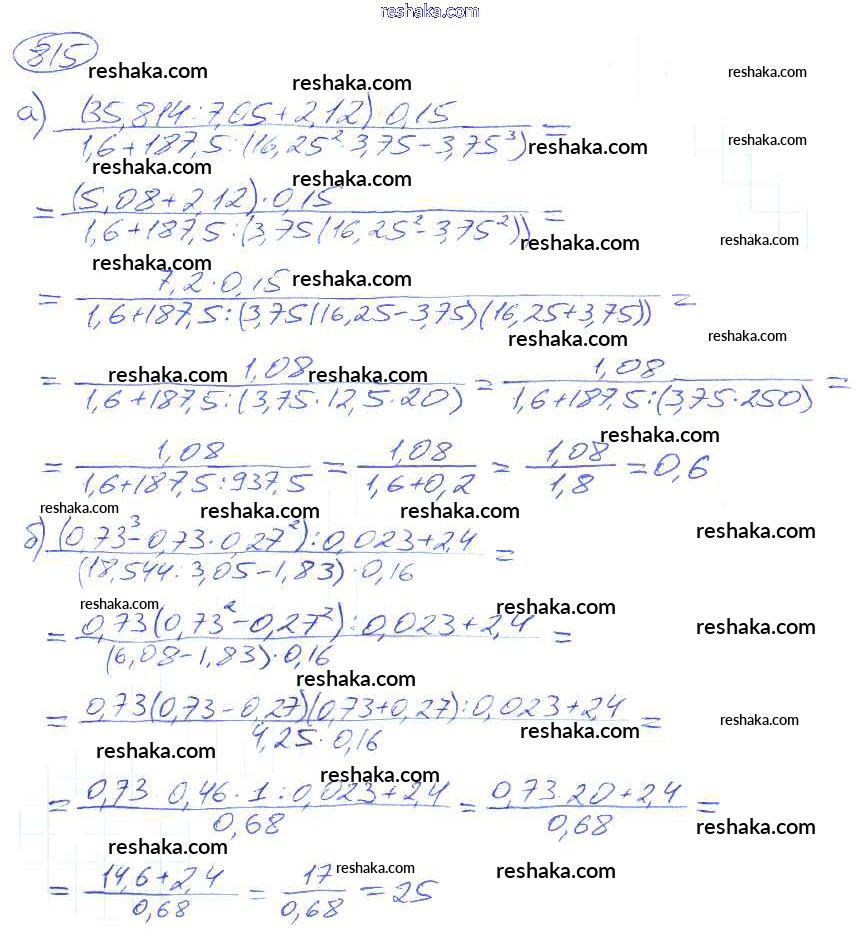 reshaka.com
815
reshaka.com reshaka.com reshaka.com
а) (35,814:7,05+2,12)·0,15 / 1,6+187,5:(16,25²·3,75-3,75³) =
reshaka.com reshaka.com
reshaka.com reshaka.com
= (5,08+2,12)·0,15 / 1,6+187,5:(3,75(16,25²-3,75²)) =
reshaka.com reshaka.com
reshaka.com reshaka.com
= 7,2·0,15 / 1,6+187,5:(3,75(16,25-3,75)(16,25+3,75)) =
reshaka.com reshaka.com
reshaka.com reshaka.com
= 1,08 / 1,6+187,5:(3,75·12,5·20) = 1,08 / 1,6+187,5:(3,75·250) =
reshaka.com
= 1,08 / 1,6+187,5:937,5 = 1,08 / 1,6+0,2 = 1,08 / 1,8 = 0,6
reshaka.com reshaka.com reshaka.com reshaka.com
б) (0,73³-0,73·0,27²):0,023+2,4 / (18,544:3,05-1,83)·0,16 =
reshaka.com reshaka.com reshaka.com
= 0,73(0,73²-0,27²):0,023+2,4 / (6,08-1,83)·0,16 =
reshaka.com
= 0,73(0,73-0,27)(0,73+0,27):0,023+2,4 / 4,25·0,16 =
reshaka.com reshaka.com
reshaka.com reshaka.com
= 0,73·0,46·1:0,023+2,4 / 0,68 = 0,73·20+2,4 / 0,68 =
reshaka.com
reshaka.com reshaka.com reshaka.com
= 14,6+2,4 / 0,68 = 17 / 0,68 = 25